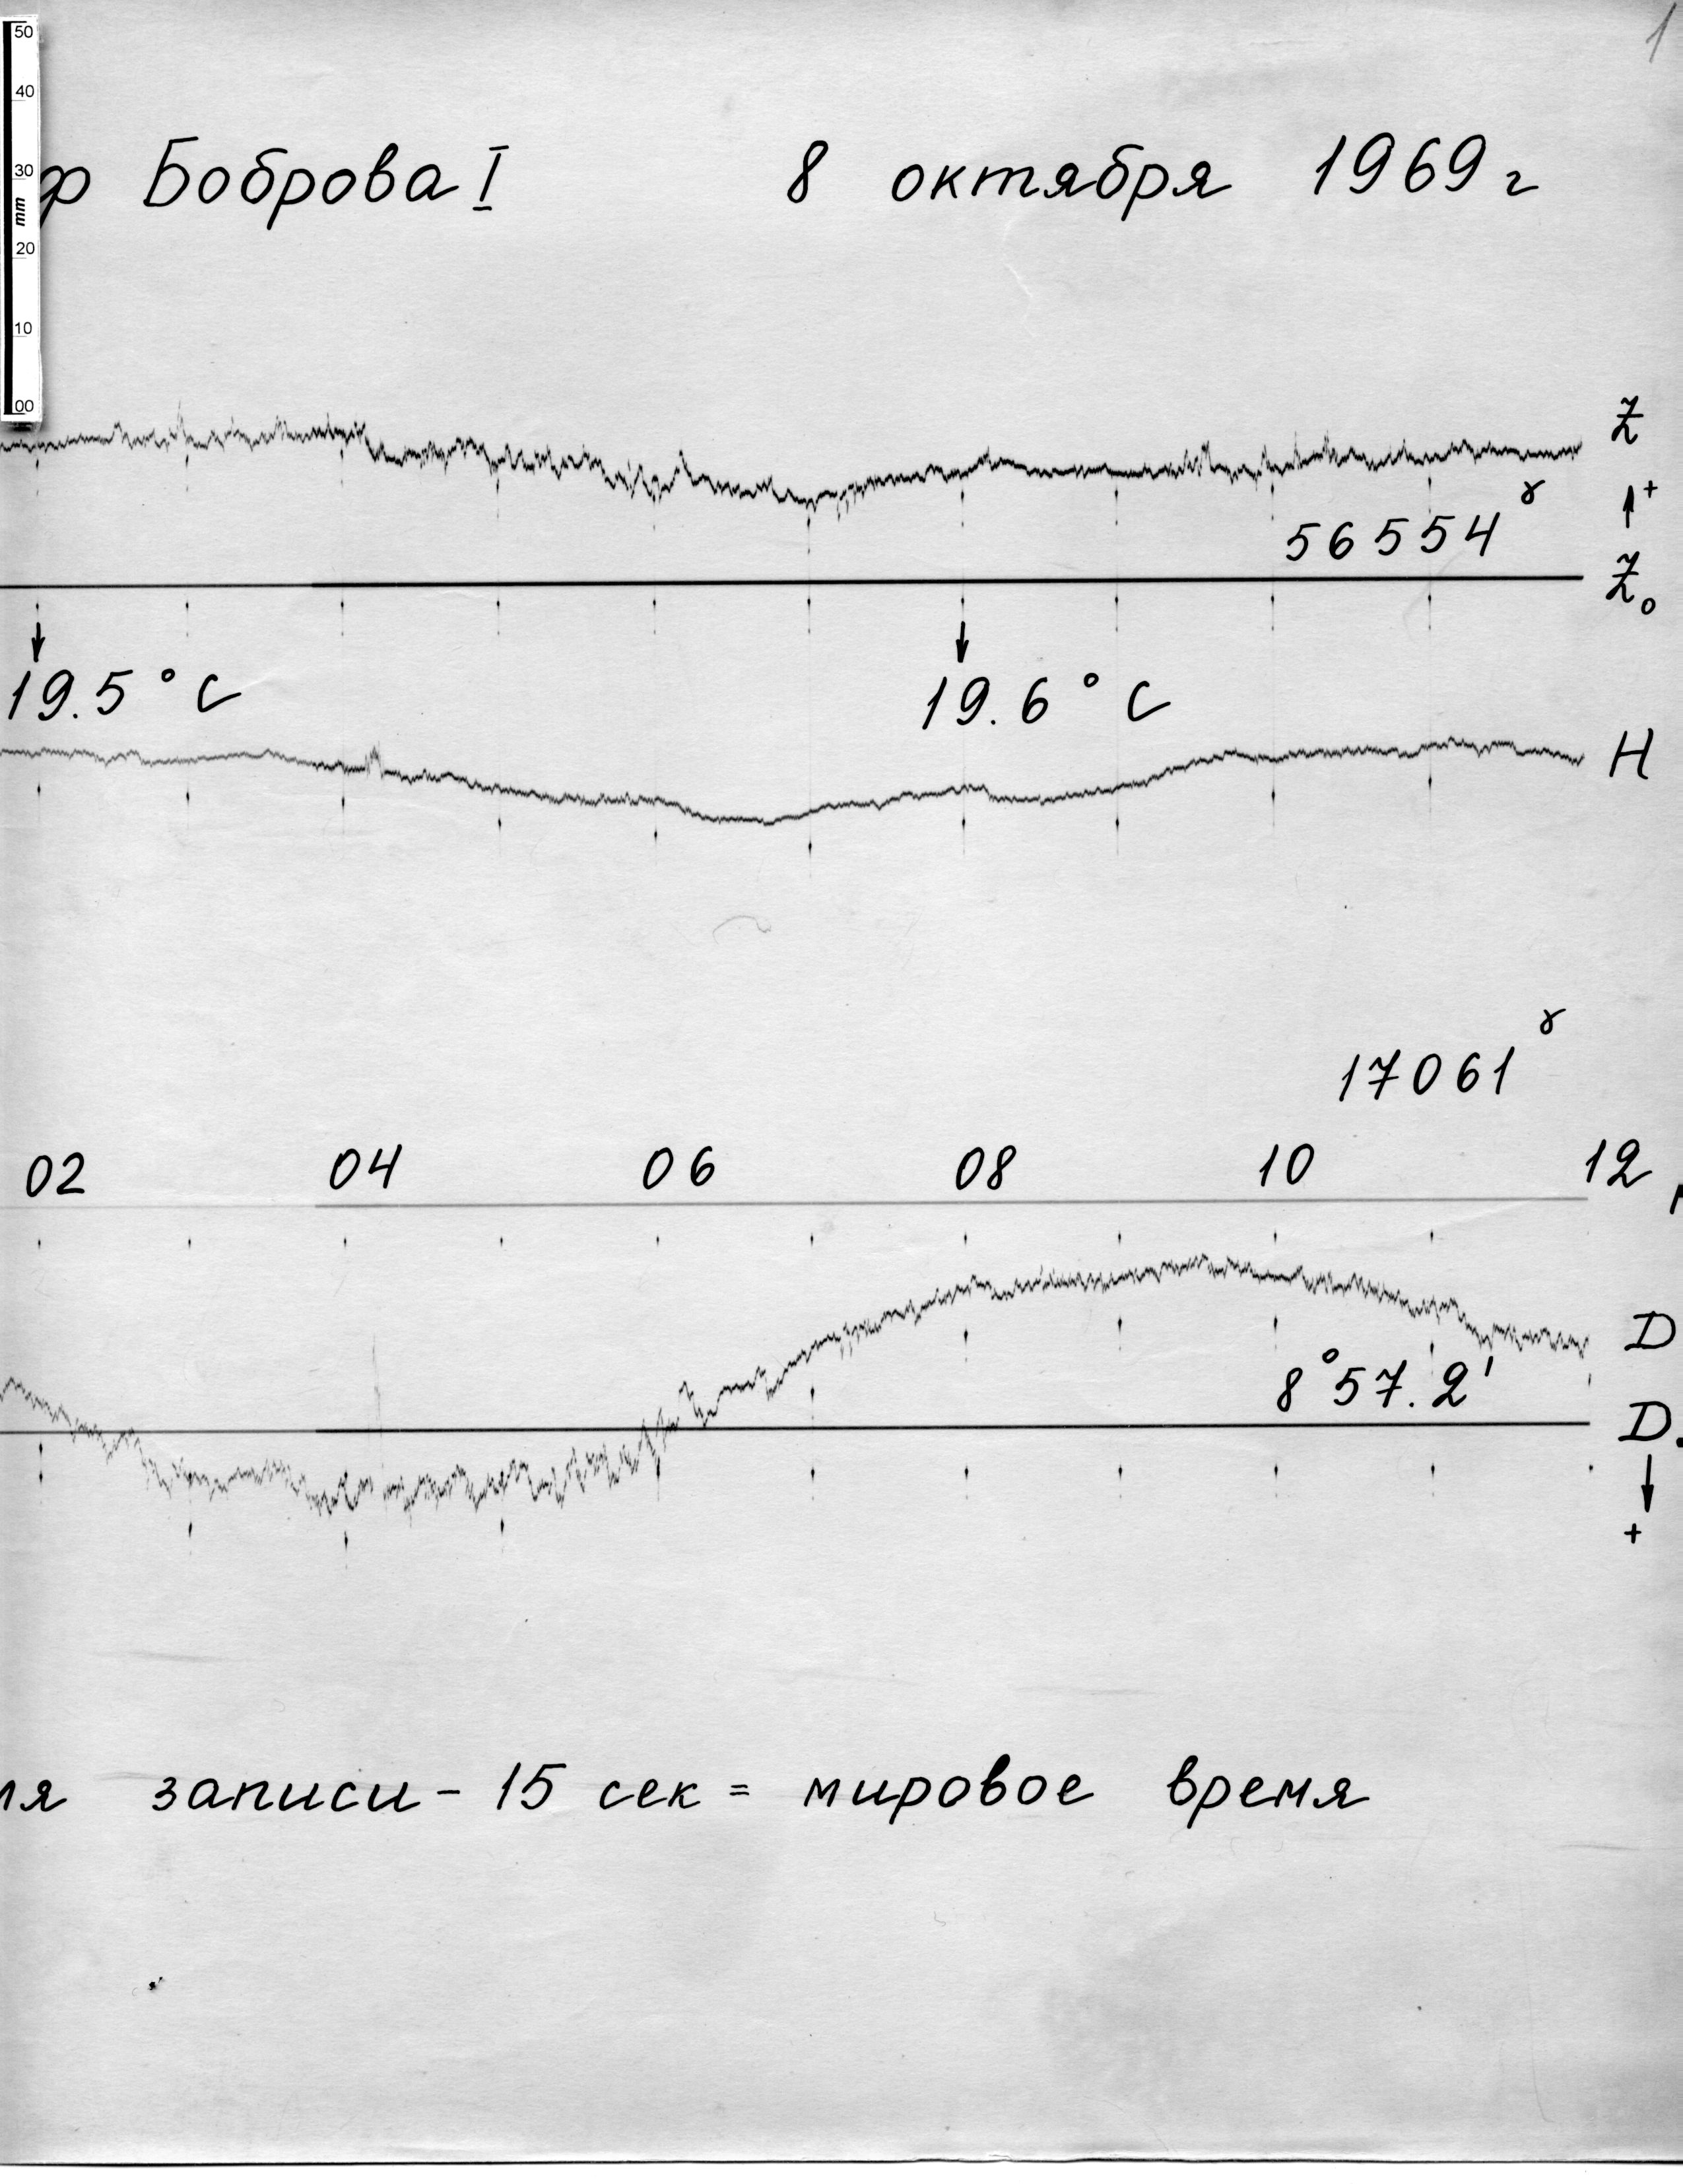 1
50
40
30
mm
20
10
00
ф Боброва I 8 октября 1969 г
Z
56554 γ
↑+
Z₀
↓ ↓
19.5°C 19.6°C
H
17061 γ
02 04 06 08 10 12
D
8°57.2'
D.
↓
+
ля записи - 15 сек = мировое время